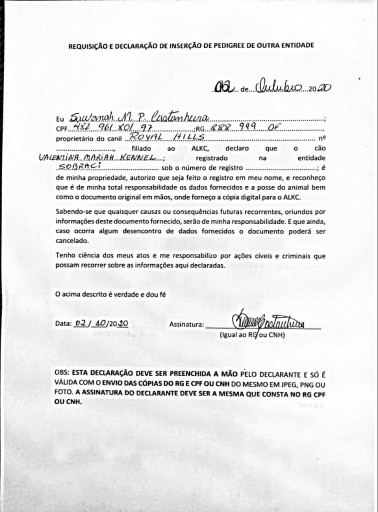 REQUISIÇÃO E DECLARAÇÃO DE INSERÇÃO DE PEDIGREE DE OUTRA ENTIDADE
02 de Outubro 2020
Eu Suevanah M. P. Castanheira;
CPF 452 961 801 97;RG 888 999 DF,
proprietário do canil ROYAL HILLS nº
, filiado ao ALKC, declaro que o cão
VALENTINA MARIAH KENNEL; registrado na entidade
SOBRACI sob o número de registro; é
de minha propriedade, autorizo que seja feito o registro em meu nome, e reconheço
que é de minha total responsabilidade os dados fornecidos e a posse do animal bem
como o documento original em mãos, onde forneço a cópia digital para o ALKC.
Sabendo-se que quaisquer causas ou consequências futuras recorrentes, oriundos por
informações deste documento fornecido, serão de minha responsabilidade. E que ainda,
caso ocorra algum desencontro de dados fornecidos o documento poderá ser
cancelado.
Tenho ciência dos meus atos e me responsabilizo por ações cíveis e criminais que
possam recorrer sobre as informações aqui declaradas.
O acima descrito é verdade e dou fé
Data: 02/10/2020 Assinatura:
(Igual ao RG ou CNH)
OBS: ESTA DECLARAÇÃO DEVE SER PREENCHIDA A MÃO PELO DECLARANTE E SÓ É
VÁLIDA COM O ENVIO DAS CÓPIAS DO RG E CPF OU CNH DO MESMO EM JPEG, PNG OU
FOTO. A ASSINATURA DO DECLARANTE DEVE SER A MESMA QUE CONSTA NO RG CPF
OU CNH.